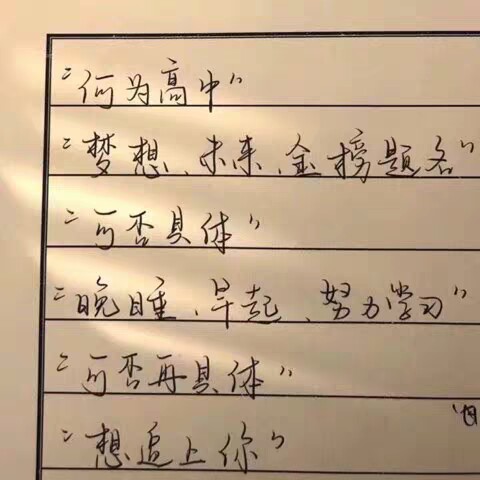 “何为高中”
“梦想、未来、金榜题名”
“可否具体”
“晚睡、早起、努力学习”
“可否再具体”
“想追上你”